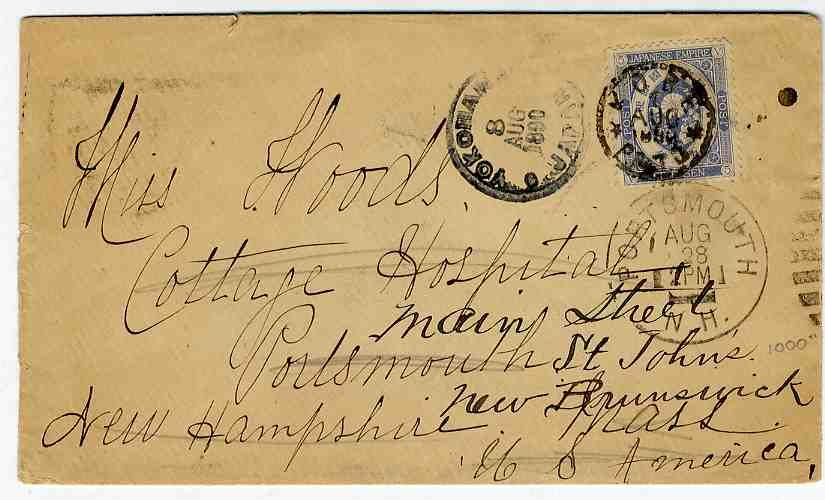 JAPANESE EMPIRE
POST
SEN
YOKOHAMA
8
AUG
1890
JAPAN
AUG
PORTSMOUTH
AUG
28
PM
N.H.
Miss Woods,
Cottage Hospital,
Main Street
Portsmouth St Johns
New Brunswick
New Hampshire. Mass.
U S America,
1000